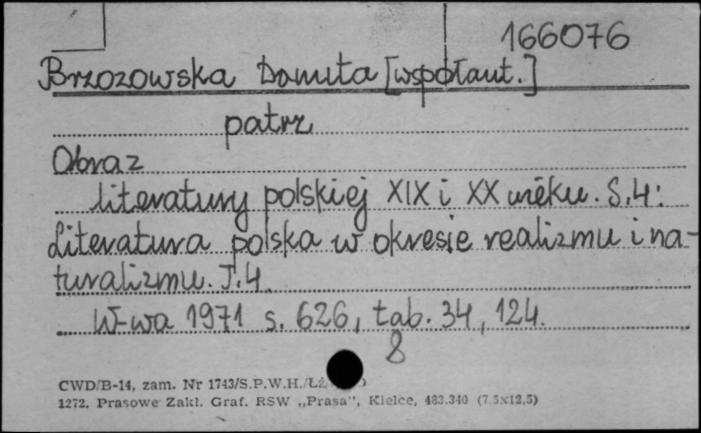 166076
Brzozowska Danuta [współaut.]
patrz
Obraz
literatury polskiej XIX i XX wieku. S.4:
Literatura polska w okresie realizmu i na-
turalizmu. T.4.
W-wa 1971 s. 626, tab. 34, 124.
8
CWD/B-14, zam. Nr 1743/S.P.W.H./
1272. Prasowe Zakł. Graf. RSW „Prasa", Kielce, 483.340 (7.5x12,5)